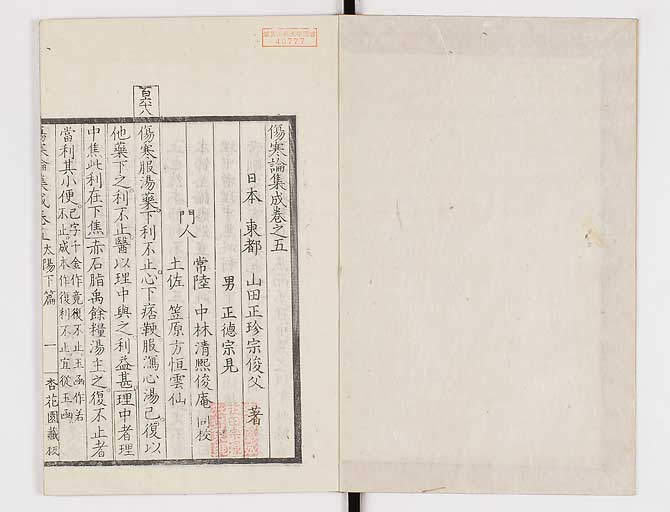 傷寒論集成卷之五
日本 東都 山田正珍宗俊父 著
男 正德宗見
常陸 中林清熙俊庵 同校
門人
土佐 笠原方恒雲仙
百六八
傷寒服湯藥下利不止心下痞鞕服瀉心湯已復以
他藥下之利不止醫以理中與之利益甚理中者理
中焦此利在下焦赤石脂禹餘糧湯主之復不止者
當利其小便
己字千金作竟復不止玉函作若
不止成本作復利不止宜從玉函
傷寒論集成卷五 太陽下篇 一 杏花園藏板
40777